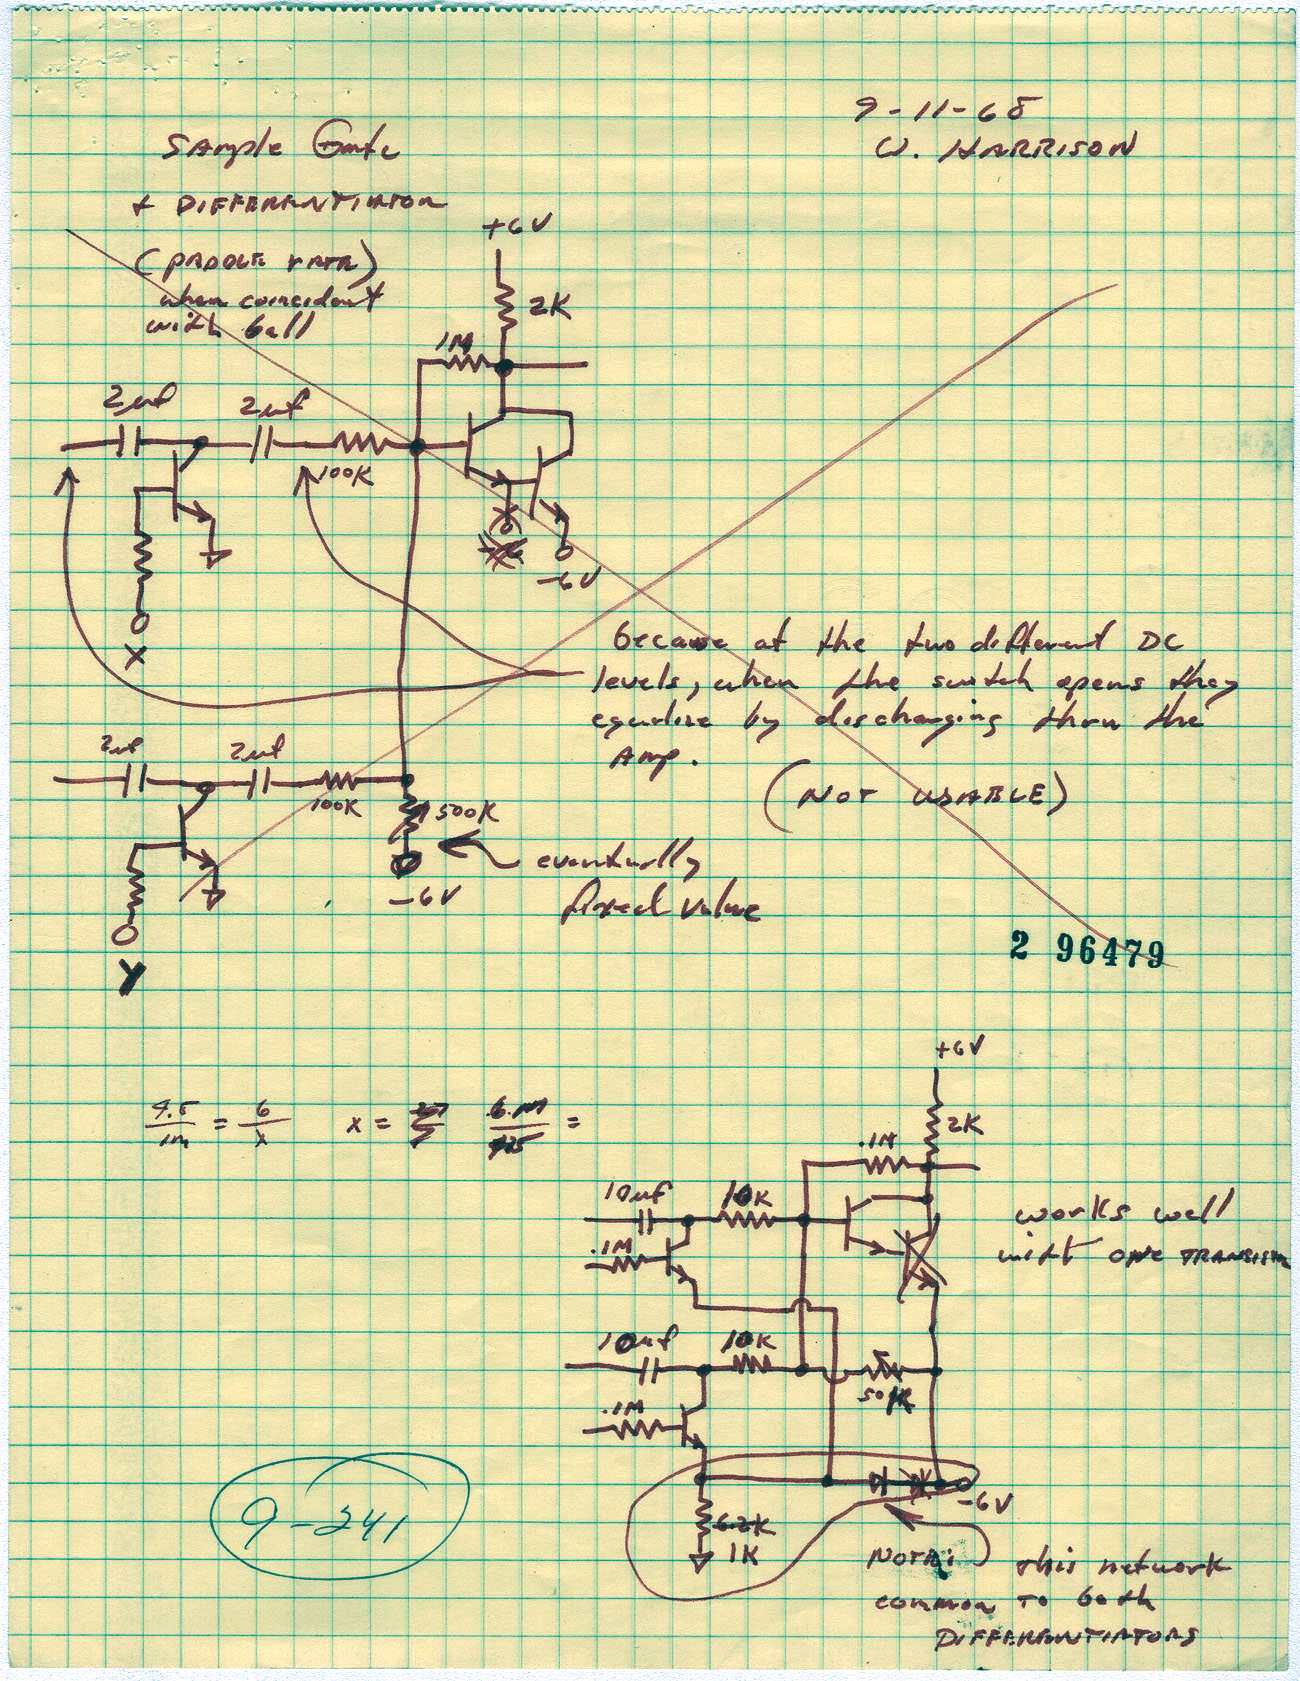 9-11-68
W. HARRISON
Sample Gate
+ DIFFERENTIATOR
(PADDLE RATE)
when coincident
with ball
+6V
2K
1M
2uf
2uf
100K
-6V
X
because at the two different DC
levels, when the switch opens they
equalize by discharging thru the
Amp.
(NOT USABLE)
2uf
2uf
100K
500K
-6V
eventually
fixed value
Y
2 96479
+6V
4.5/1M = 6/x x =
=
2K
.1M
10uf
10K
works well
with one TRANSISTOR
.1M
10uf
10K
50K
.1M
-6V
6.2K
1K
9-241
NOTE: this network
common to both
DIFFERENTIATORS